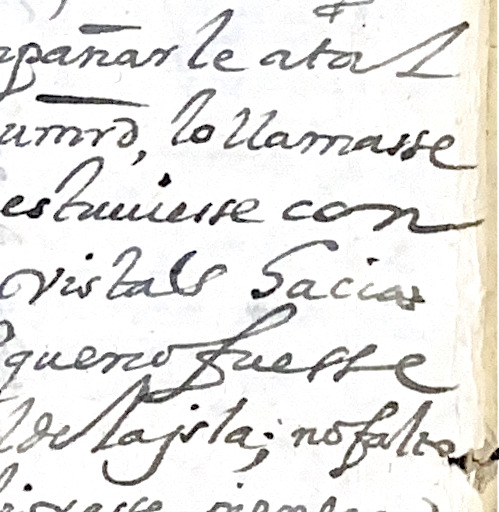 pañar le a tal
umrd, lo llamasse
estuuiesse con
vistals Hacias
que no fuesse
l de la jsla; no falto